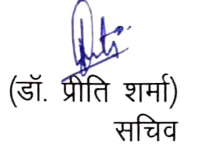 (डॉ. प्रीति शर्मा)
सचिव